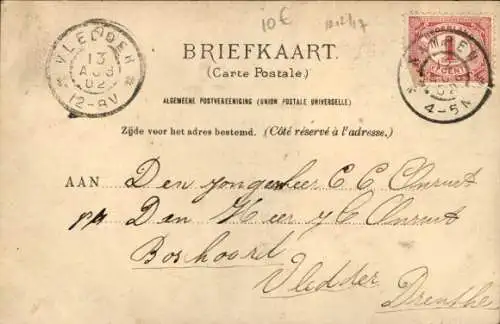 10€
VLEDDER
13
AUG
02
12-8V
4-5N
BRIEFKAART.
(Carte Postale.)
ALGEMEENE POSTVEREENIGING (UNION POSTALE UNIVERSELLE)
Zijde voor het adres bestemd. (Côté réservé à l'adresse.)
AAN Den jongeheer C C Onrust
p/a Den Heer J C Onrust
Boschoord
Vledder
Drenthe